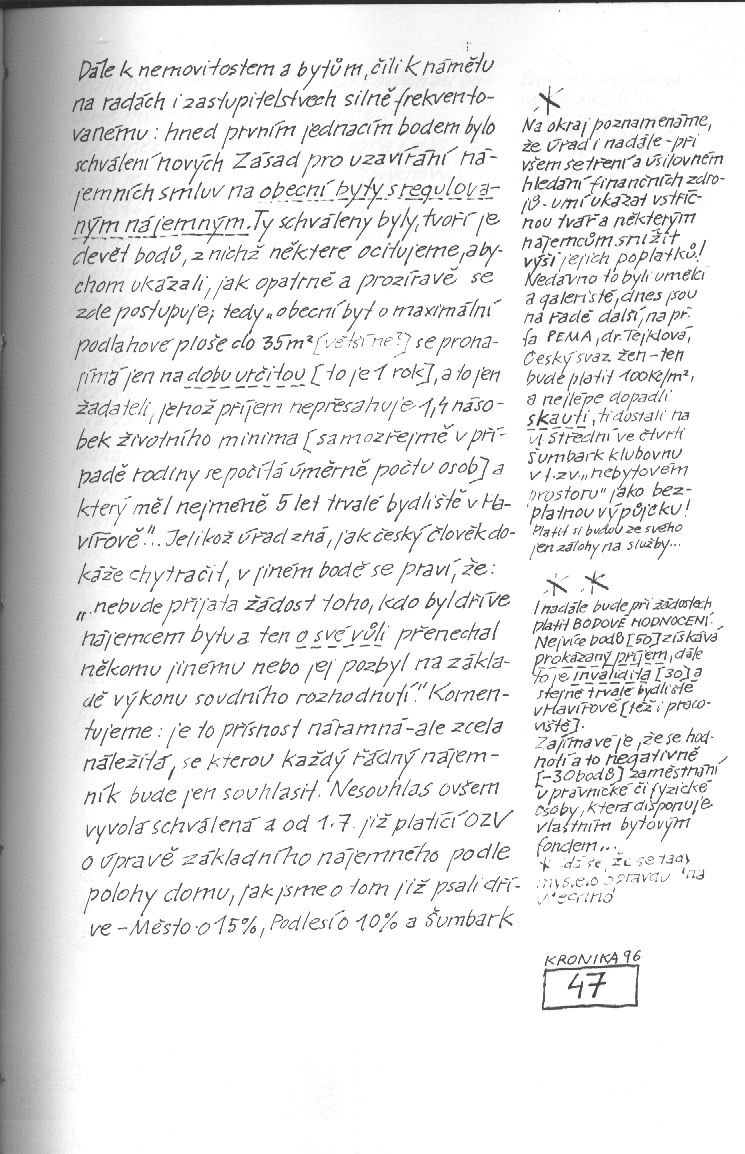 Dále k nemovitostem a bytům, čili k námětu
na radách i zastupitelstvech silně frekvento-
vanému: hned prvním jednacím bodem bylo
schválení nových Zásad pro uzavírání ná-
jemních smluv na obecní byty s regulova-
ným nájemným. Ty schváleny byly, tvoří je
devět bodů, z nichž některé ocitujeme, aby-
chom ukázali, jak opatrně a prozíravě se
zde postupuje; tedy „obecní byt o maximální
podlahové ploše do 35m² [větší ne?] se prona-
jímá jen na dobu určitou [to je 1 rok], a to jen
žadateli, jehož příjem nepřesahuje 1,4 náso-
bek životního minima [samozřejmě v pří-
padě rodiny se počítá úměrně počtu osob] a
který měl nejméně 5 let trvalé bydliště v Ha-
vířově“... Jelikož úřad zná, jak český člověk do-
káže chytračit, v jiném bodě se praví, že:
„..nebude přijata žádost toho, kdo byl dříve
nájemcem bytu a ten o své vůli přenechal
někomu jinému nebo jej pozbyl na zákla-
dě výkonu soudního rozhodnutí.“ Komen-
tujeme: je to přísnost náramná-ale zcela
náležitá, se kterou každý řádný nájem-
ník bude jen souhlasit. Nesouhlas ovšem
vyvolá schválená a od 1.7. již platící OZV
o úpravě základního nájemného podle
polohy domu, jak jsme o tom již psali dří-
ve - Město o 15%, Podlesí o 10% a Šumbark
*
Na okraj poznamenáme,
že úřad i nadále - při
všem šetření a úsilovném
hledání finančních zdro-
jů - umí ukázat vstříc-
nou tvář a některým
nájemcům snížit
výši jejich poplatků!
Nedávno to byli umělci
a galeristé, dnes jsou
na řadě další, na př.
fa PEMA, dr. Tejklová,
Český svaz žen - ten
bude platit 100Kč/m²,
a nejlépe dopadli
skauti, ti dostali na
ul Střední ve čtvrti
Šumbark klubovnu
v t. zv. „nebytovém
prostoru“ jako bez-
platnou výpůjčku!
Platit si budou ze svého
jen zálohy na služby...
* *
I nadále bude při žádostech
platit BODOVÉ HODNOCENÍ.
Nejvíce bodů [50] získává
prokázaný příjem, dále
to je invalidita [30] a
stejně trvalé bydliště
v Havířově [též i praco-
viště].
Zajímavé je, že se hod-
notí a to negativně
[-30 bodů] zaměstnání
u právnické či fyzické
osoby, která disponuje
vlastním bytovým
fondem...
* zdá se, že se tady
myslelo opravdu na
všechno
KRONIKA 96
47